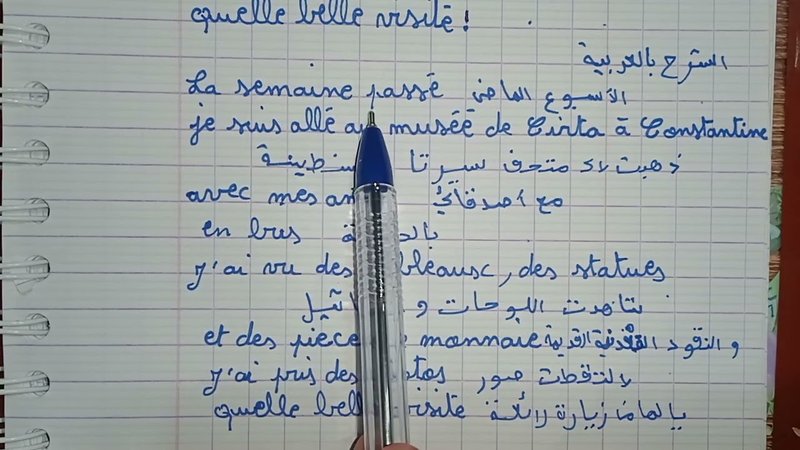 quelle belle visite !
الشرح بالعربية
La semaine passé الأسبوع الماضي
je suis allé au muséé de Cirta à Constantine
ذهبت لا متحف سيرتا
avec mes مع أصدقائي
en bus
j'ai vu des , des statues
شاهدت اللوحات و
et des monnaie و النقود القديمة
j'ai pris des التقطت صور
quelle belle visite يا لها من زيارة رائعة